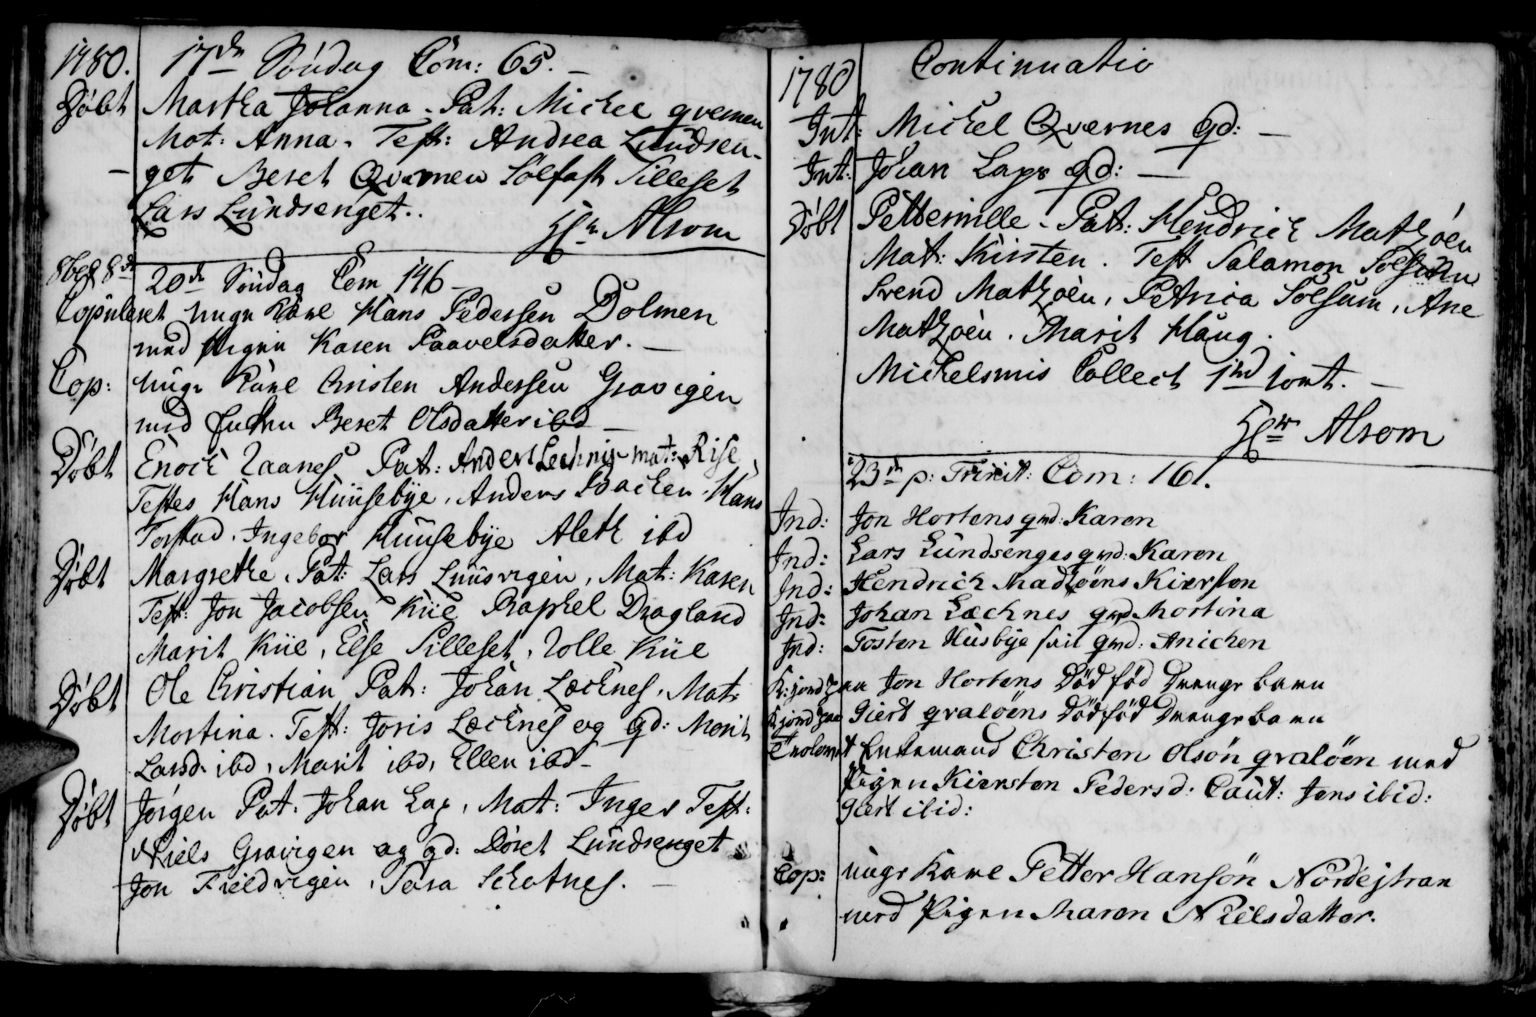 1780. 17de Söndag Com: 65. –
Döbt Martha Johanna. Pat: Michel qvernen
Mot: Anna. Test: Andrea Lundsen-
get Beret Qvernen Solfast Silleset
Lars Lundsenget..
Hr Alsom
8br 8de 20de Söndag Com 146 –
Copuleret unge Karl Hans Pedersen Dolmen
med Pigen Karen Paavelsdatter. –
Cop: unge Karl Christen Andersen Gravigen
med Enken Beret Olsdatter ibd –
Döbt Enoch Pat: Anders Lechnis mat: Rise
Testes Hans Huusebÿe, Anders Backen Hans
Tostad. Ingebor Huusebÿe Aleth ibd
Döbt Margrethe, Pat: Lars Luusvigen, Mat: Karen
Test: Jon Jacobsen Kiie Raphel Dragland
Marit Kiie, Else Silleset, Kiie
Döbt Ole Christian Pat: Johan Lechnes, Mat:
Mortina. Test: Joris Lechnes og gd: Marit
Larsd: ibd, Marit ibd, Ellen ibd –
Döbt Jörgen Pat: Johan Lap, Mat: Inger Test:
Niels Gravigen og gd: Döret Lundsenget
Jon Fieldvigen, Sara Schotnes. –
1780 Continuatio
Int: Michel Qvernes qd: –
Int: Johan Laps qd: –
Döbt Petternille. Pat: Hendrich Matzöen
Mat: Kirsten. Test Salamon Solsum
Svend Matzöen, Petrica Solsum, Ane
Matzöen. Marit Haug.
Michelsmis Collect 1rd 1ort. –
Hr Alsom
23de p: Trinit: Com: 161.
Ind: Jon Hortens qvd: Karen
Ind: Lars Lundsenges qvd: Karen
Ind: Hendrich Madzöens Kiersten
Ind: Johan Læchnes qvd Mortina
Ind: Tosten Husbÿe qvd: Anichen
K: jord Jon Hortens Dödfød Drenge barn
K: jord Giert gralöens Dödfød Drenge barn
Trolovet Enkemand Christen Olsön gralöen med
Pigen Kiersten Pedersd: Caut: Jens ibid:
Giert ibid:
Cop: unge Karl Petter Hansön Nordejtran
med Pigen Maren Nielsdatter.